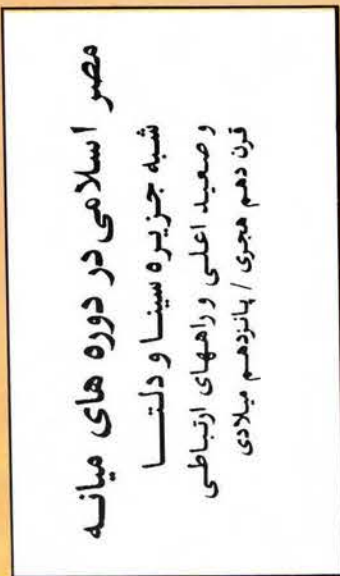 مصر اسلامی در دوره های میانه
شبه جزیره سینا و دلتا
وصعید اعلی و راههای ارتباطی
قرن دهم هجری / پانزدهم میلادی